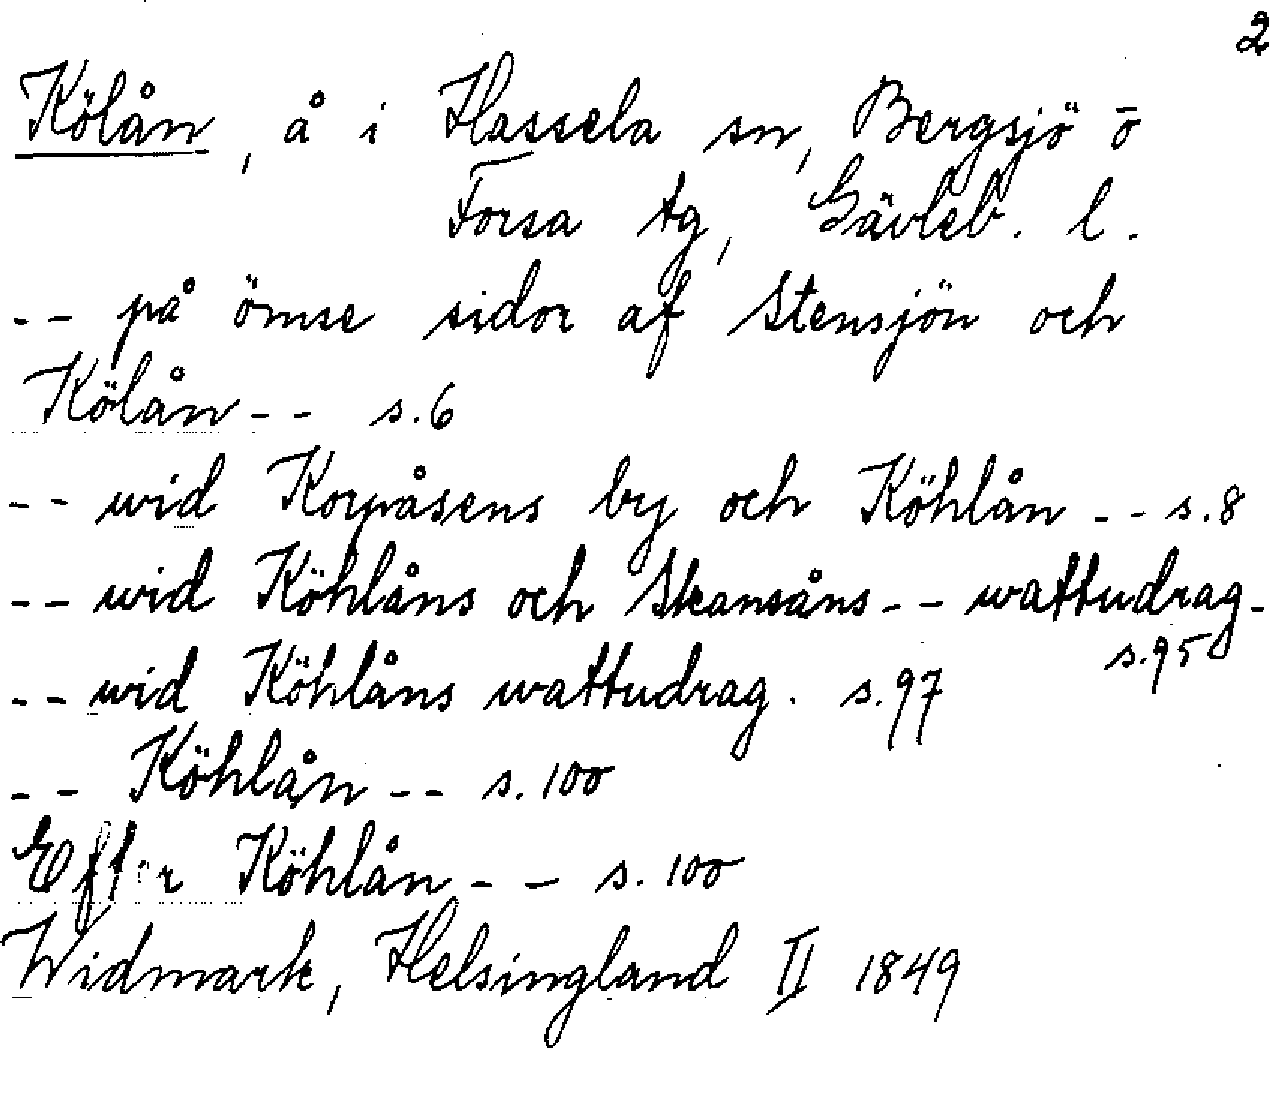 2
Kölån, å i Hassela sn, Bergsjö o
Forsa tg, Gävleb. l.
-- på ömse sidor af Stensjön och
Kölån -- s.6
-- wid Korpåsens by och Köhlån -- s.8
-- wid Köhlåns och Skansåns -- wattudrag -
s.95
-- wid Köhlåns wattudrag. s.97
-- Köhlån -- s.100
Efter Köhlån -- s.100
Widmark, Helsingland II 1849